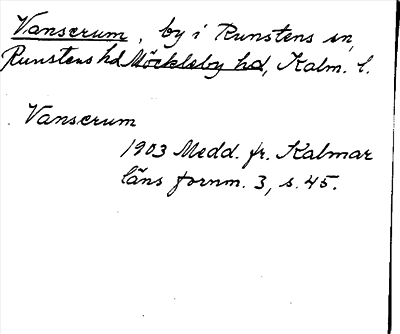 Vanserum, by i Runstens sn,
Runstens hd Möckleby hd, Kalm. l.
Vanserum
1903 Medd. fr. Kalmar
läns fornm. 3, s. 45.